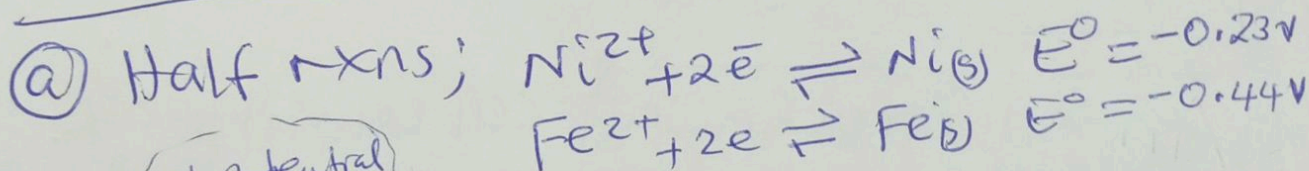 ⓐ Half rxns; Ni²⁺ + 2ē ⇌ Ni(s) E⁰ = -0.23V
Fe²⁺ + 2e ⇌ Fe(s) E° = -0.44V